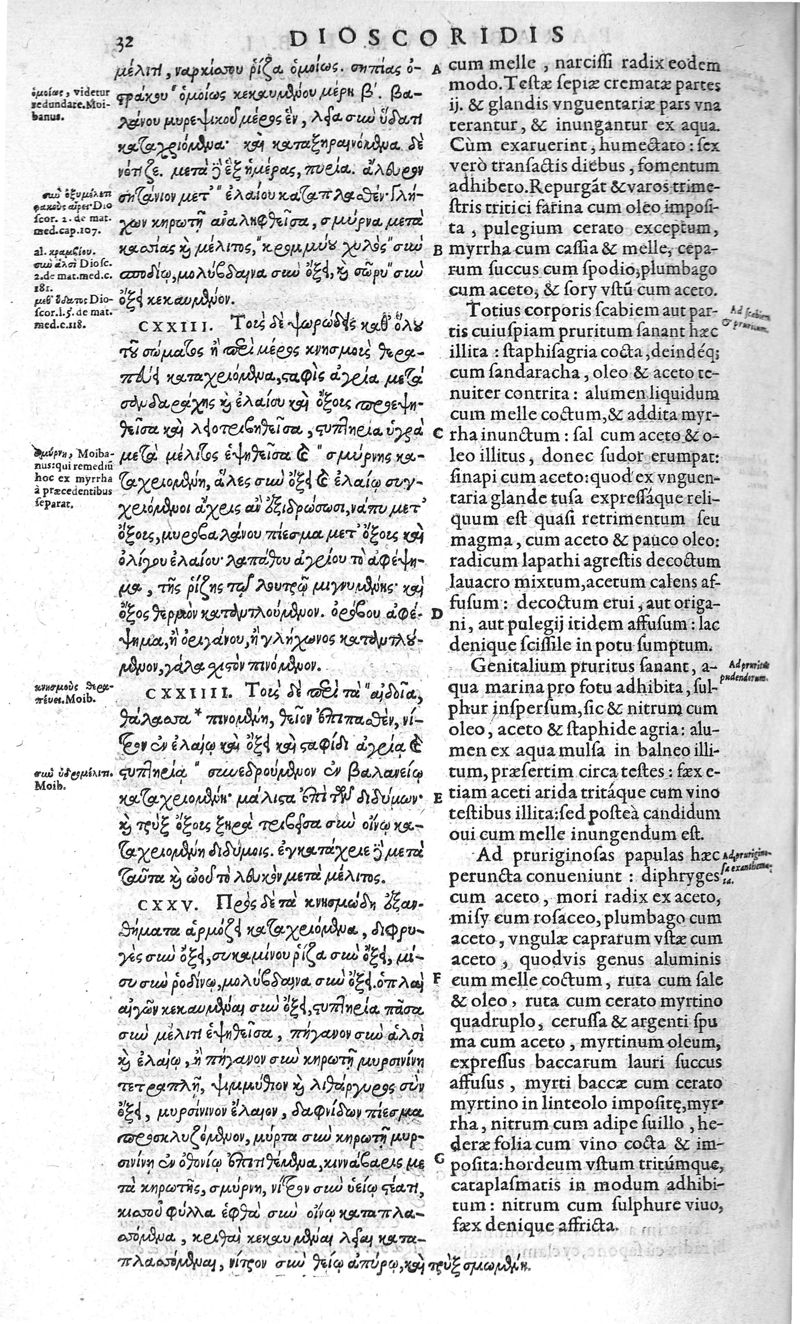 32
DIOSCORIDIS
ὁμοίως, videtur
redundare. Moi-
banus.
σὺν ὀξυμέλιτι
φακοὺς αἴρει· Dio
scor. 2. de mat.
med.cap.107.
al. κραμβίου.
σὺν ἁλσὶ Diosc.
2. de mat.med.c.
181.
μεθ' ὕδατος Dio-
scor.l.5. de mat.
med.c.118.
σμύρνη, Moiba-
nus: qui remediū
hoc ex myrrha
à præcedentibus
separat.
κνησμοὺς θερα-
πεύει. Moib.
σὺν ὑδρομέλιτι.
Moib.
μέλιτι, ναρκίσσου ῥίζα ὁμοίως. σηπίας ὀ-
στράκου ὁμοίως κεκαυμένου μέρη β΄. βα-
λάνου μυρεψικοῦ μέρος ἓν, λεῖα σὺν ὕδατι
καταχριόμενα· καὶ καταξηραινόμενα δὲ
νότιζε. μετὰ δὲ ἓξ ἡμέρας, πυρία. ἄλευρον
σητάνιον μετ' ἐλαίου καταπλασθέν· γλή-
χων κηρωτῇ ἀναληφθεῖσα, σμύρνα μετὰ
κασίας καὶ μέλιτος, κρομμύου χυλὸς σὺν
σποδίῳ, μολύβδαινα σὺν ὄξει, καὶ σῶρυ σὺν
ὄξει κεκαυμένον.
CXXIII. Τοῖς δὲ ψωρώδεις καθ' ὅλου
τοῦ σώματος ἢ περὶ μέρος κνησμοῖς θερα-
πεύει καταχριόμενα, σταφὶς ἀγρία μετὰ
σανδαράχης καὶ ἐλαίου καὶ ὄξους προεψη-
θεῖσα καὶ λειοτριβηθεῖσα, στυπτηρία ὑγρὰ
μετὰ μέλιτος ἑψηθεῖσα καὶ σμύρνης κα-
ταχριομένη, ἅλες σὺν ὄξει καὶ ἐλαίῳ συγ-
χριόμενοι ἄχρις ἂν ἐξιδρώσωσι, νάπυ μετ'
ὄξους, μυροβαλάνου πίεσμα μετ' ὄξους καὶ
ὀλίγου ἐλαίου· λαπάθου ἀγρίου τὸ ἀφέψη-
μα, τῆς ῥίζης τῷ λουτρῷ μιγνυμένης· καὶ
ὄξος θερμὸν καταντλούμενον. ὀρόβου ἀφέ-
ψημα, ἢ ὀριγάνου, ἢ γλήχωνος καταντλού-
μενον, γάλα σχιστὸν πινόμενον.
CXXIIII. Τοῖς δὲ περὶ τὰ αἰδοῖα,
θάλασσα * πινομένη, θεῖον ἐπιπασθὲν, νί-
τρον ἐν ἐλαίῳ καὶ ὄξει καὶ σταφίδι ἀγρίᾳ καὶ
στυπτηρίᾳ συνεδρούμενον ἐν βαλανείῳ
καταχριομένη· μάλιστα ἐπὶ τῶν διδύμων·
καὶ τρὺξ ὄξους ξηρὰ τριβεῖσα σὺν οἴνῳ κα-
ταχριομένη διδύμοις. ἐγκατάχριε δὲ μετὰ
ταῦτα καὶ ὠοῦ τὸ λευκὸν μετὰ μέλιτος.
CXXV. Πρὸς δὲ τὰ κνησμώδη ἐξαν-
θήματα ἁρμόζει καταχριόμενα, διφρυ-
γὲς σὺν ὄξει, συκαμίνου ῥίζα σὺν ὄξει, μί-
συ σὺν ῥοδίνῳ, μολύβδαινα σὺν ὄξει. ὁπλαὶ
αἰγῶν κεκαυμέναι σὺν ὄξει, στυπτηρία πᾶσα
σὺν μέλιτι ἑψηθεῖσα, πήγανον σὺν ἁλσὶ
καὶ ἐλαίῳ, ἢ πήγανον σὺν κηρωτῇ μυρσινίνῃ
τετραπλῇ, ψιμμύθιον καὶ λιθάργυρος σὺν
ὄξει, μυρσίνινον ἔλαιον, δαφνίδων πίεσμα
προσκλυζόμενον, μύρτα σὺν κηρωτῇ μυρ-
σινίνῃ ἐν ὀθονίῳ ἐπιτιθέμενα, κιννάβαρις με
τὰ κηρωτῆς, σμύρνη, νίτρον σὺν ὑείῳ στέατι,
κισσοῦ φύλλα ἑφθὰ σὺν οἴνῳ καταπλα-
σσόμενα, κριθαὶ κεκαυμέναι λεῖαι κατα-
πλασσόμεναι, νίτρον σὺν θείῳ ἀπύρῳ, καὶ τρὺξ σμωμένη.
A
B
C
D
E
F
G
cum melle, narcissi radix eodem
modo. Testæ sepiæ crematæ partes
ij. & glandis vnguentariæ pars vna
terantur, & inungantur ex aqua.
Cùm exaruerint, humectato: sex
verò transactis diebus, fomentum
adhibeto. Repurgāt & varos trime-
stris tritici farina cum oleo imposi-
ta, pulegium cerato exceptum,
myrrha cum cassia & melle, cepa-
rum succus cum spodio, plumbago
cum aceto, & sory vstū cum aceto.
Totius corporis scabiem aut par-
tis cuiuspiam pruritum sanant hæc
illita: staphisagria cocta, deindéq;
cum sandaracha, oleo & aceto te-
nuiter contrita: alumen liquidum
cum melle coctum, & addita myr-
rha inunctum: sal cum aceto & o-
leo illitus, donec sudor erumpat:
sinapi cum aceto: quod ex vnguen-
taria glande tusa expressáque reli-
quum est quasi retrimentum seu
magma, cum aceto & pauco oleo:
radicum lapathi agrestis decoctum
lauacro mixtum, acetum calens af-
fusum: decoctum erui, aut origa-
ni, aut pulegij itidem affusum: lac
denique scissile in potu sumptum.
Genitalium pruritus sanant, a-
qua marina pro fotu adhibita, sul-
phur inspersum, sic & nitrum cum
oleo, aceto & staphide agria: alu-
men ex aqua mulsa in balneo illi-
tum, præsertim circa testes: fæx e-
tiam aceti arida tritáque cum vino
testibus illita: sed posteà candidum
oui cum melle inungendum est.
Ad pruriginosas papulas hæc
peruncta conueniunt: diphryges
cum aceto, mori radix ex aceto,
misy cum rosaceo, plumbago cum
aceto, vngulæ caprarum vstæ cum
aceto, quodvis genus aluminis
cum melle coctum, ruta cum sale
& oleo, ruta cum cerato myrtino
quadruplo, cerussa & argenti spu
ma cum aceto, myrtinum oleum,
expressus baccarum lauri succus
affusus, myrti baccæ cum cerato
myrtino in linteolo impositę, myr-
rha, nitrum cum adipe suillo, he-
deræ folia cum vino cocta & im-
posita: hordeum vstum tritúmque,
cataplasmatis in modum adhibi-
tum: nitrum cum sulphure viuo,
fæx denique affricta.
Ad scabiem
& pruritum.
Ad pruritū
pudendorum.
Ad prurigino-
sa exanthema-
ta.